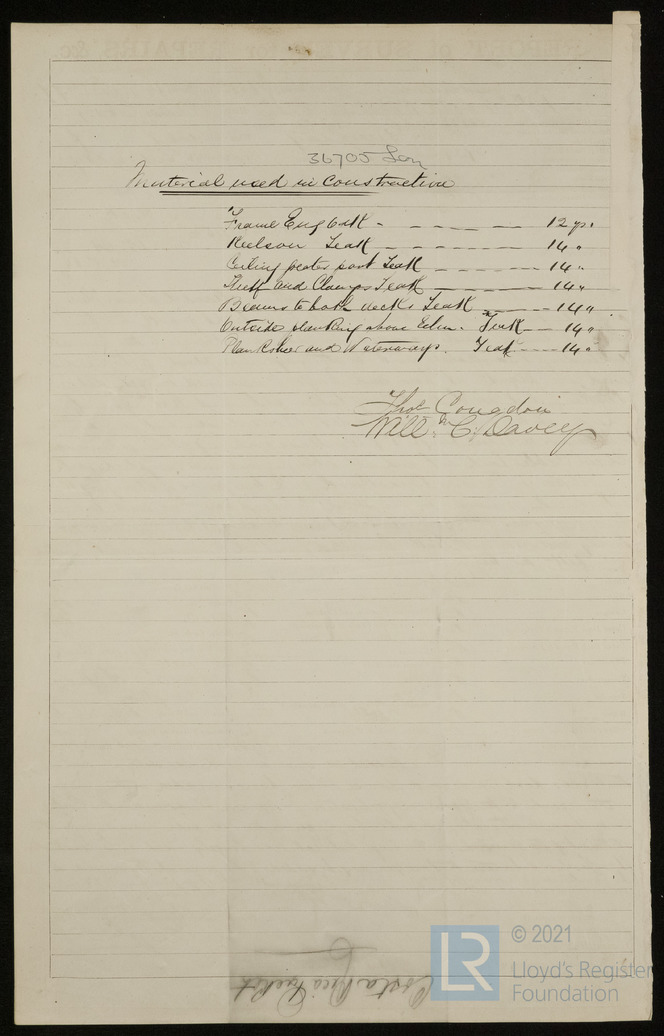 36705 Lon
Material used in Construction
Frame Eng Oak - - - - - 12 yrs
Keelson Teak - - - - - 14 "
Ceiling greater part Teak - - - - 14 "
Shelf and Clamps Teak - - - - 14 "
Beams to both decks Teak - - - 14 "
Outside planking above Elm. Teak - - 14 "
Planksheer and Waterways. Teak - - - 14 "
Thos Congdon
Will C. Davey
Costa Rica Packet
© 2021
Lloyd's Register
Foundation
LR